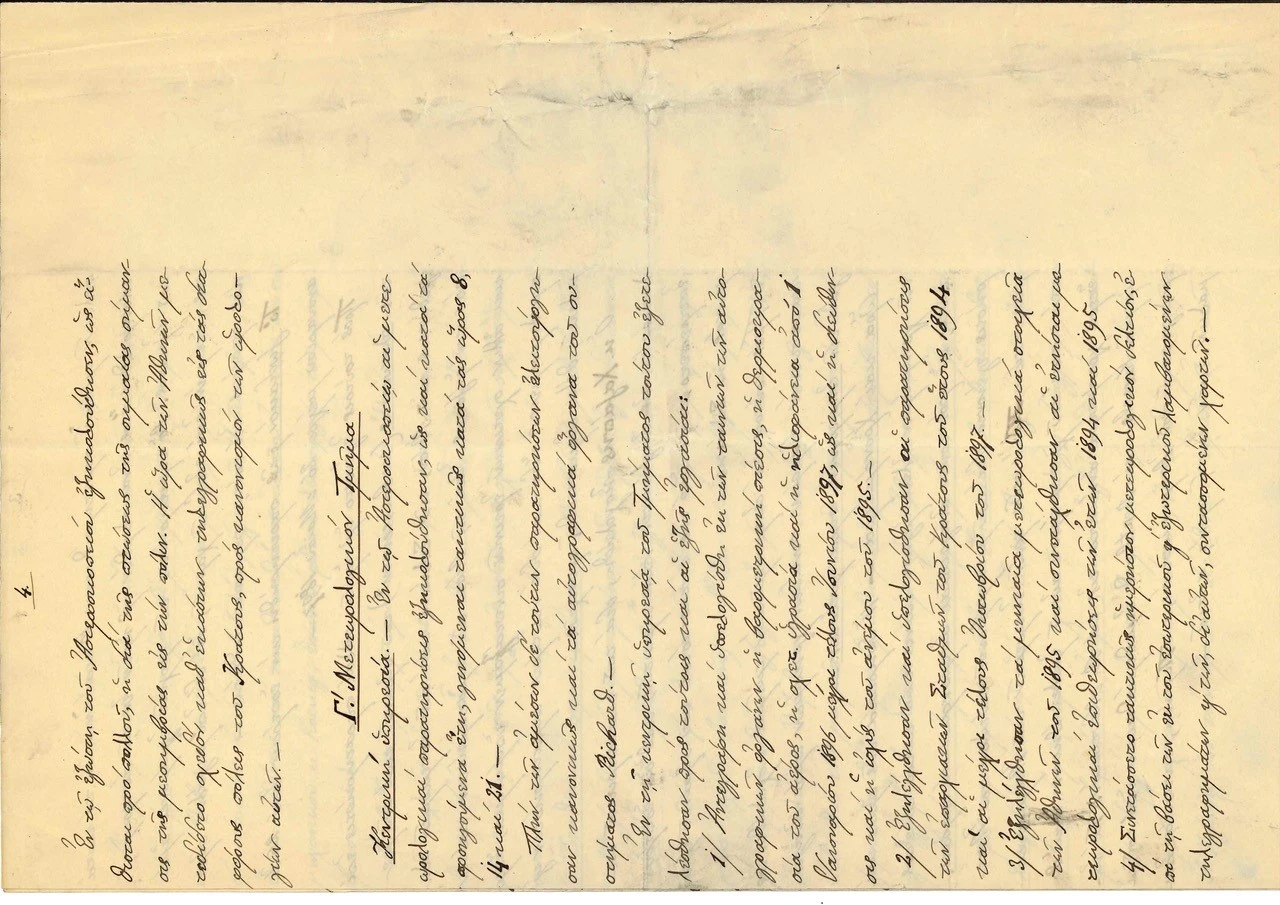 4.
Ἐν τῷ ἐξώστῃ τοῦ Ἀστεροσκοπείου ἐξηκολούθησεν, ὡς εἴ-
θισται πρὸ πολλοῦ, ἡ διὰ τῆς πτώσεως τῆς σημαίας σήμαν-
σις τῆς μεσημβρίας εἰς τὴν πόλιν. Ἡ ὥρα τῶν Ἀθηνῶν με-
τεδίδετο σχεδὸν καθ' ἑκάστην τηλεγραφικῶς εἰς τὰς δια-
φόρους πόλεις τοῦ Κράτους, πρὸς κανονισμὸν τῶν ὡρολο-
γίων αὐτῶν.—
Γ'. Μετεωρολογικὸν Τμῆμα
Κεντρικὴ ὑπηρεσία.— Ἐν τῷ Ἀστεροσκοπείῳ αἱ μετε-
ωρολογικαὶ παρατηρήσεις ἐξηκολούθησαν, ὡς καὶ κατὰ τὰ
προηγούμενα ἔτη, γινόμεναι τακτικῶς κατὰ τὰς ὥρας 8,
14 καὶ 21.—
Πλὴν τῶν ἀμέσων δὲ τούτων παρατηρήσεων ἐλειτούργη-
σαν κανονικῶς καὶ τὰ αὐτογραφικὰ ὄργανα τοῦ συ-
στήματος Richard.—
Ἐν τῇ κεντρικῇ ὑπηρεσίᾳ τοῦ Τμήματος τούτου ἐξετε-
λέσθησαν πρὸς τούτοις καὶ αἱ ἑξῆς ἐργασίαι:
1/ Ἀντεγράφη καὶ ὑπελογίσθη ἐκ τῶν ταινιῶν τῶν αὐτο-
γραφικῶν ὀργάνων ἡ βαρομετρικὴ πίεσις, ἡ θερμοκρα-
σία τοῦ ἀέρος, ἡ σχετ. ὑγρασία καὶ ἡ ἡλιοφάνεια ἀπὸ 1
Ἰανουαρίου 1896 μέχρι τέλους Ἰουνίου 1897, ὡς καὶ ἡ διεύθυν-
σις καὶ ἡ ἰσχὺς τοῦ ἀνέμου τοῦ 1895.—
2/ Ἐξηλέγχθησαν καὶ ὑπελογίσθησαν αἱ παρατηρήσεις
τῶν ἐπαρχιακῶν Σταθμῶν τοῦ Κράτους τοῦ ἔτους 1894
καὶ αἱ μέχρι τέλους Ὀκτωβρίου τοῦ 1897.—
3/ Ἐξηλέγχθησαν τὰ μηνιαῖα μετεωρολογικὰ στοιχεῖα
τῶν Ἀθηνῶν τοῦ 1895 καὶ συνετάχθησαν αἱ ἐτήσιαι με-
τεωρολογικαὶ ἐπιθεωρήσεις τῶν ἐτῶν 1894 καὶ 1895
4/ Συνετάσσετο τακτικῶς ἡμερήσιον μετεωρολογικὸν δελτίον, ἐ-
πὶ τῇ βάσει τῶν ἐκ τοῦ ἐσωτερικοῦ ἢ ἐξωτερικοῦ λαμβανομένων
τηλεγραφημάτων ἢ τῶν, δι' αὐτῶν, συντασσομένων χαρτῶν.—